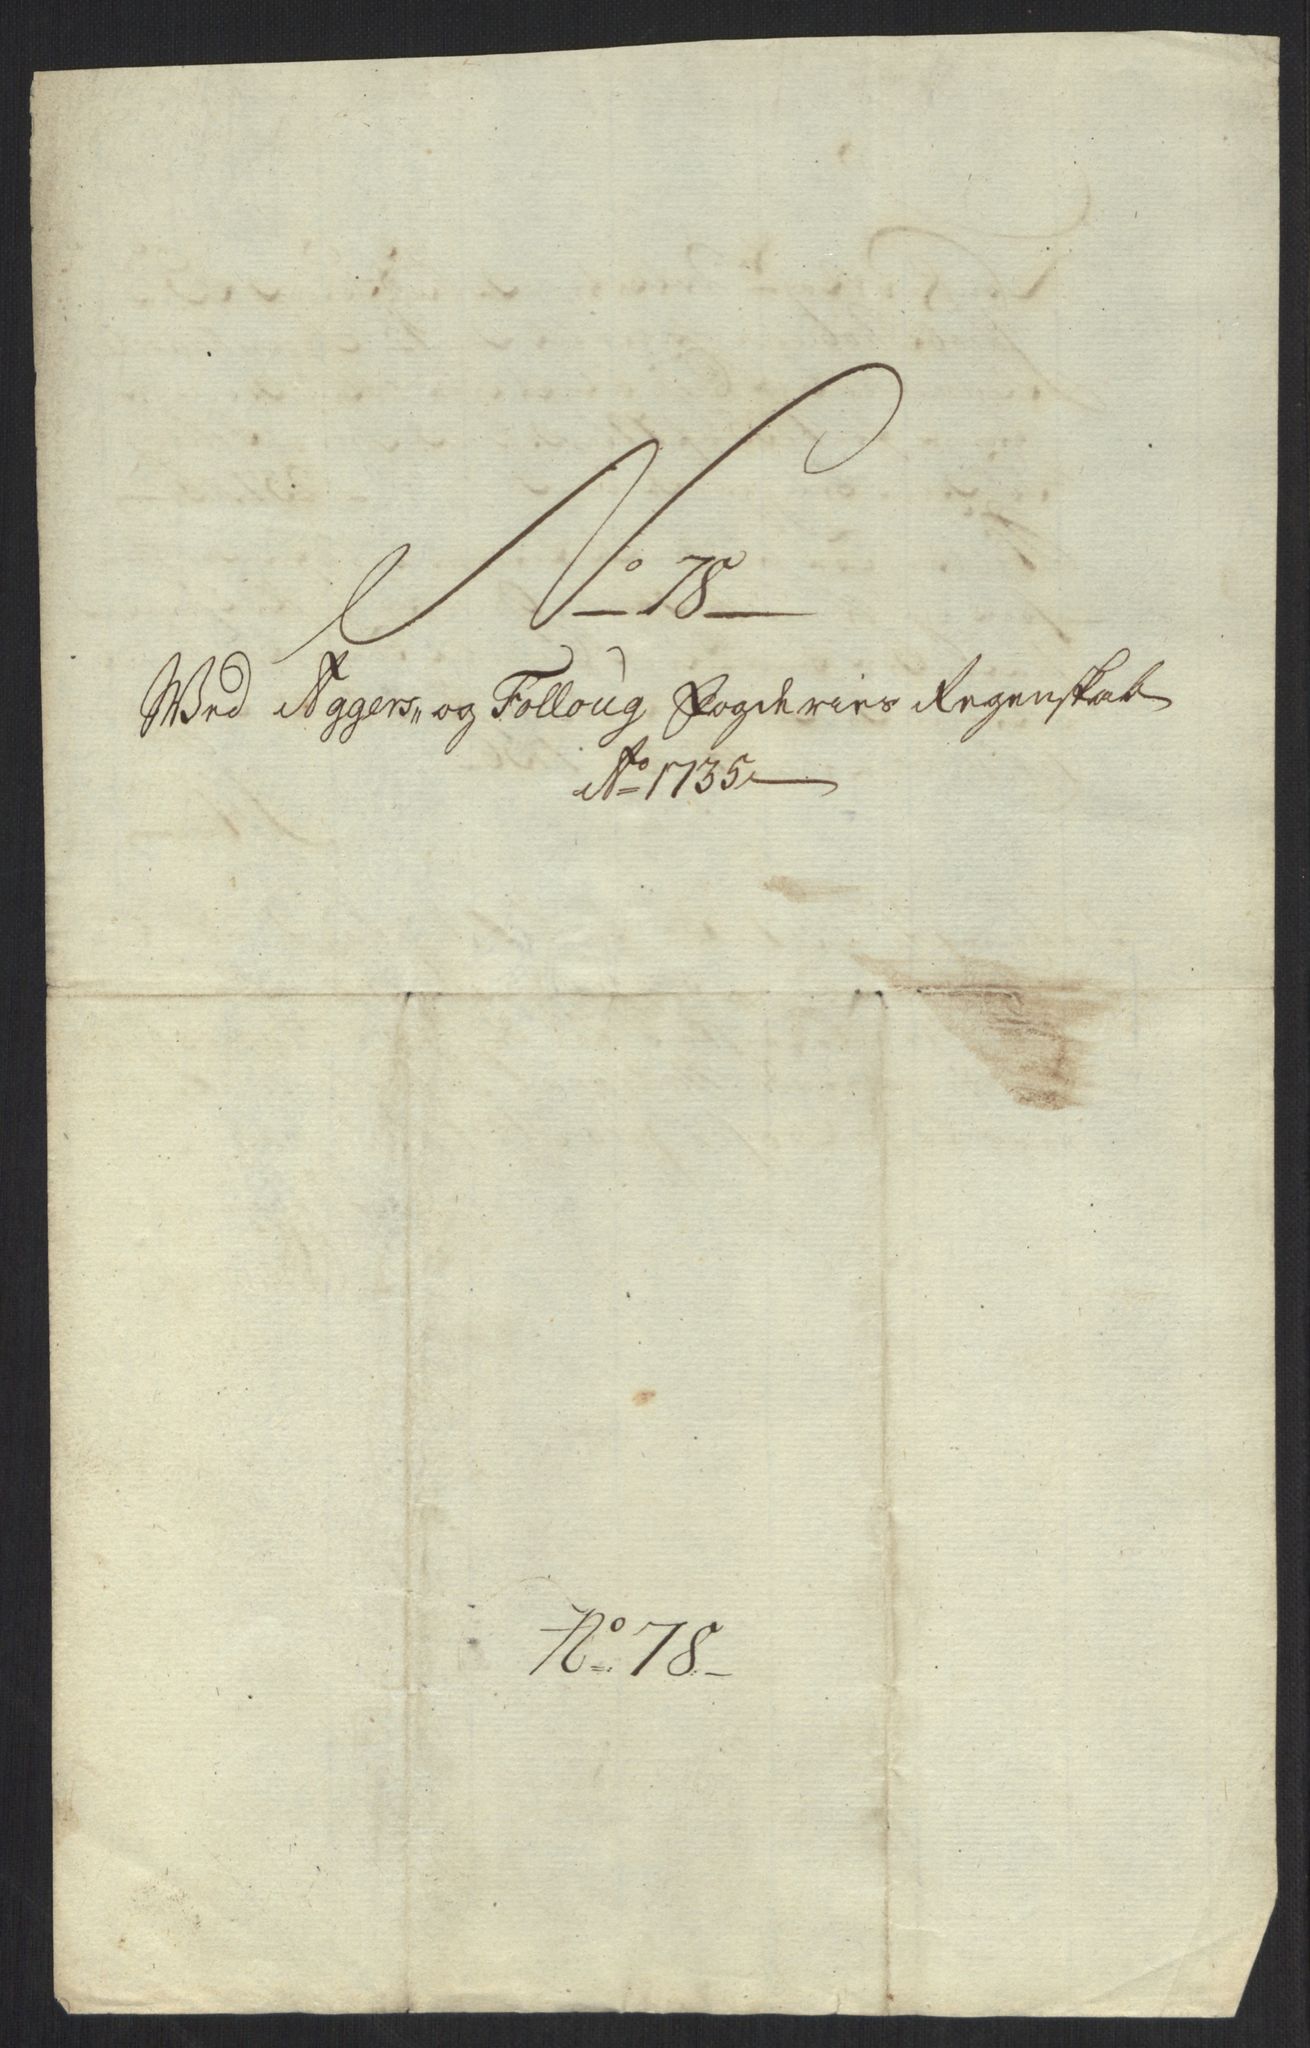 No 78
Wed Aggers„ og Folloug Fogderies Regenskab
Ao 1735
No 78